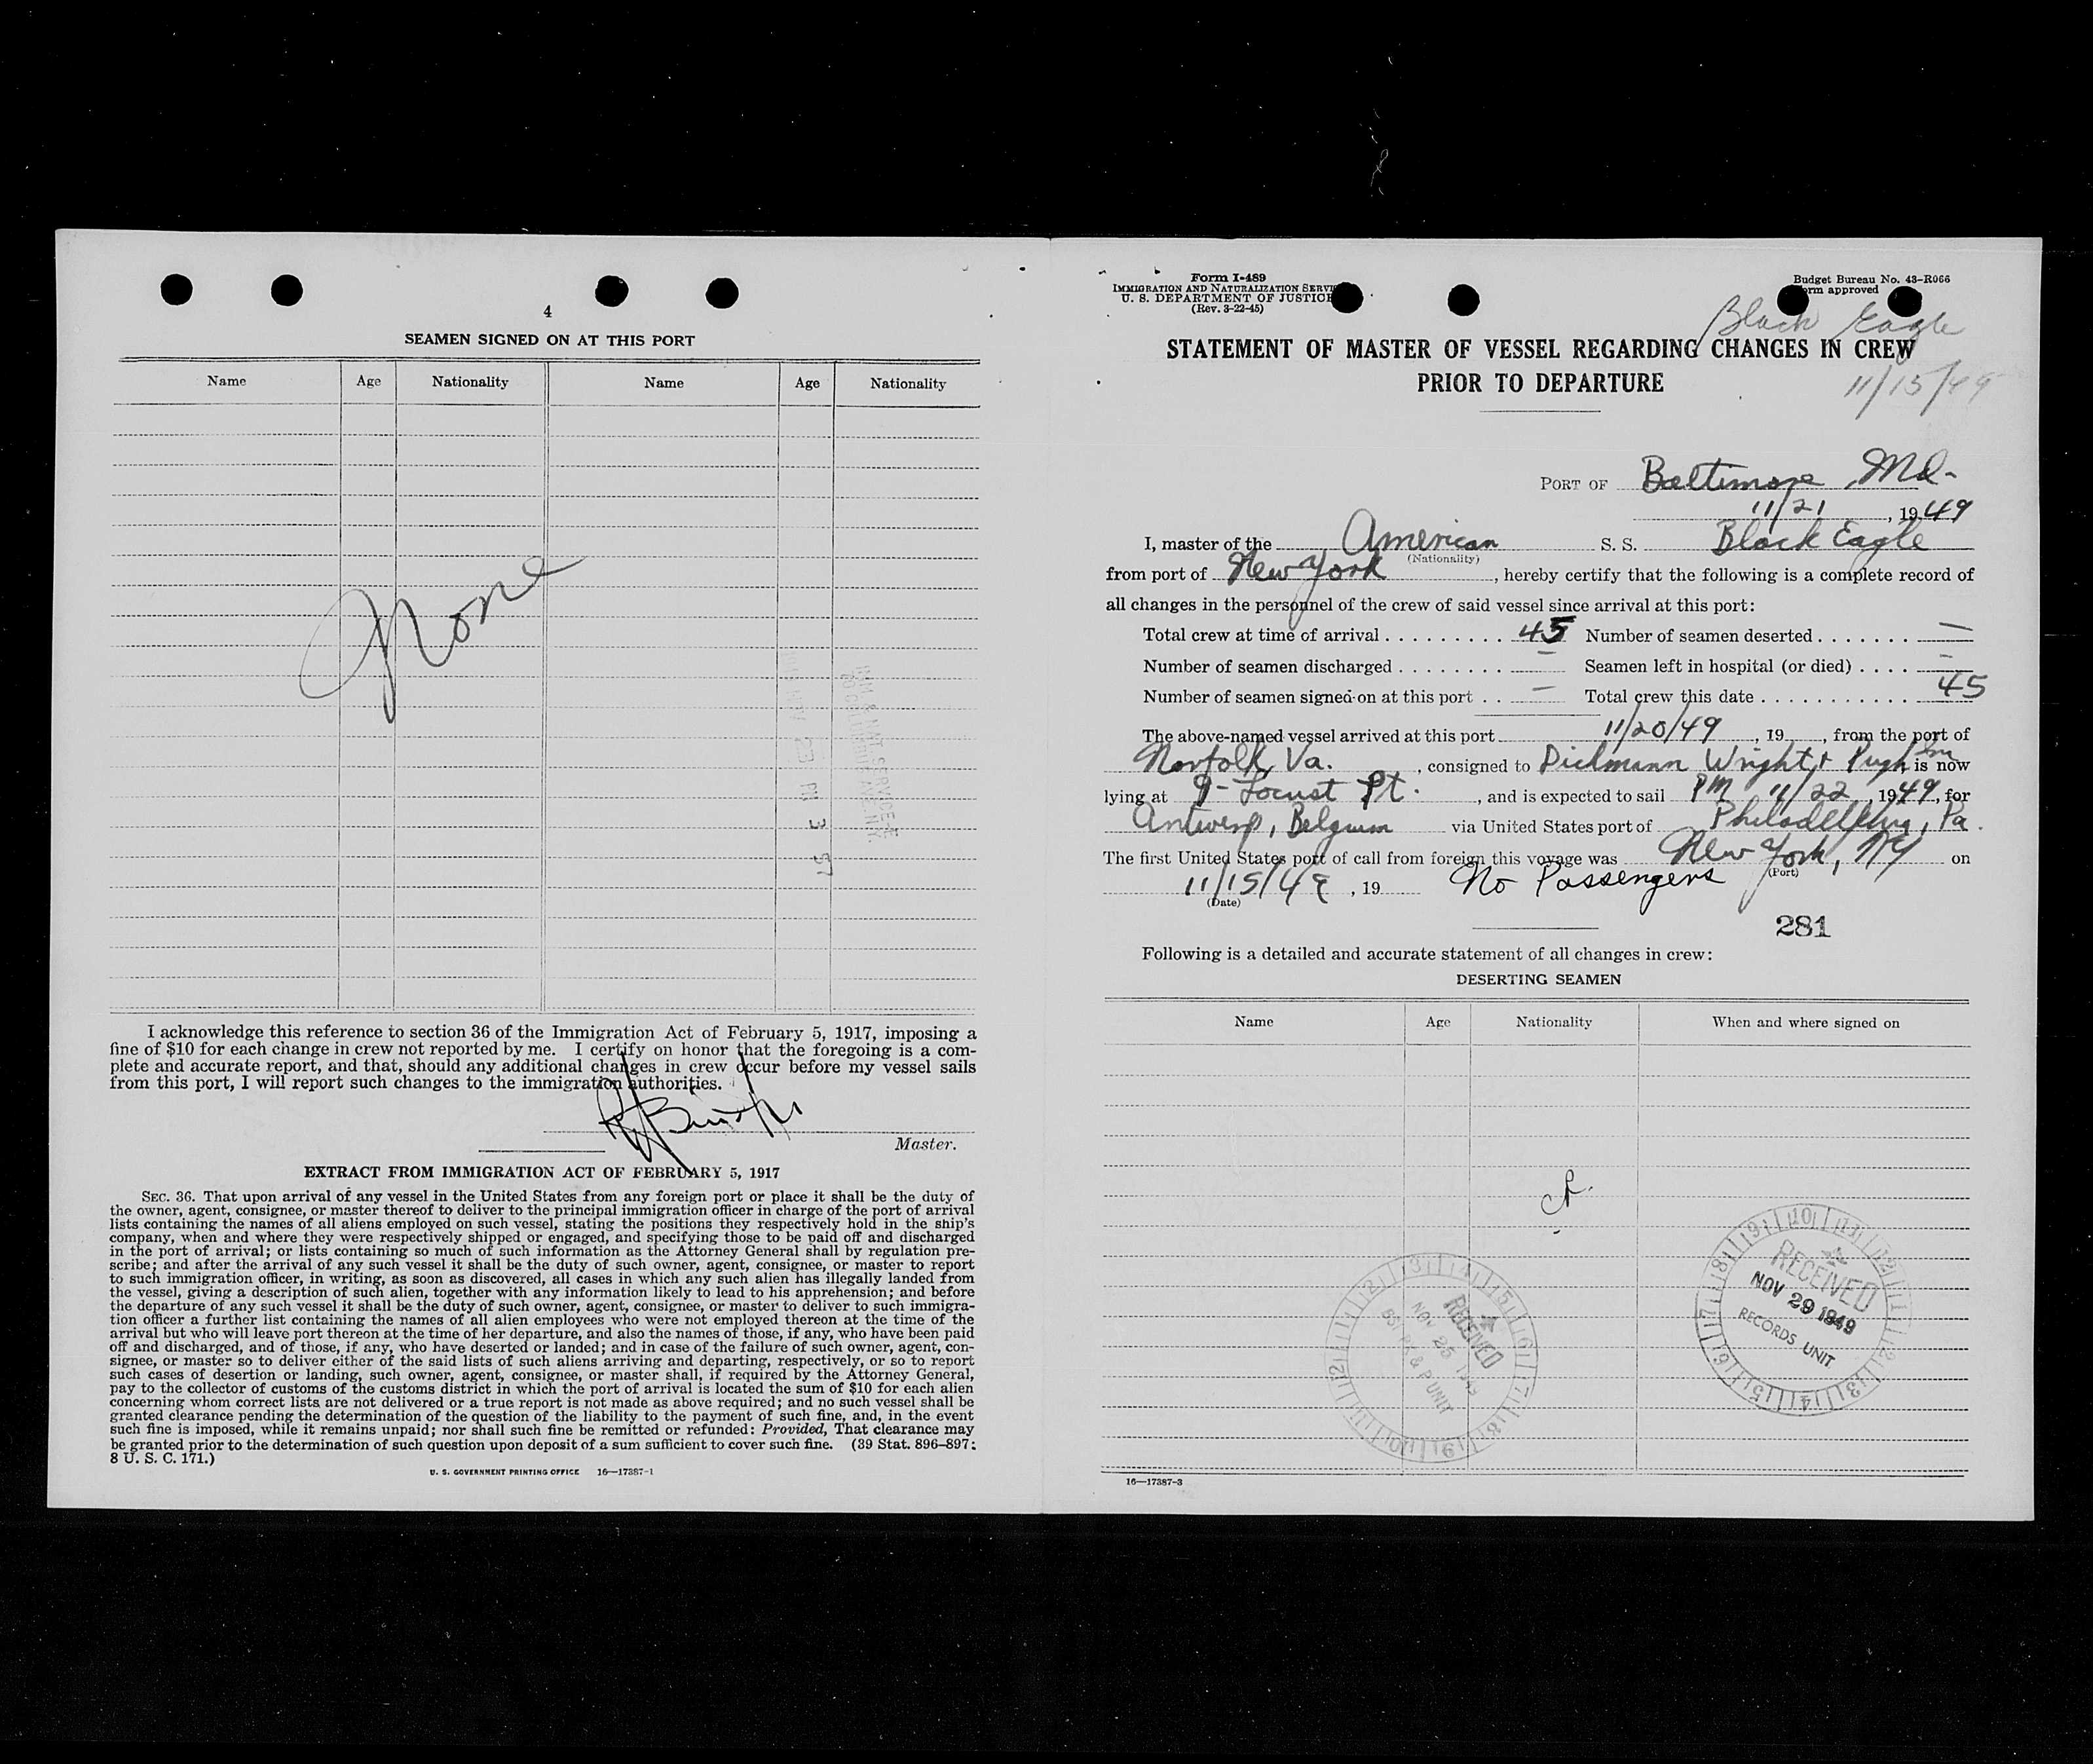 4
SEAMEN SIGNED ON AT THIS PORT
Name Age Nationality Name Age Nationality
None
I acknowledge this reference to section 36 of the Immigration Act of February 5, 1917, imposing a
fine of $10 for each change in crew not reported by me. I certify on honor that the foregoing is a com-
plete and accurate report, and that, should any additional changes in crew occur before my vessel sails
from this port, I will report such changes to the immigration authorities.
Master.
EXTRACT FROM IMMIGRATION ACT OF FEBRUARY 5, 1917
SEC. 36. That upon arrival of any vessel in the United States from any foreign port or place it shall be the duty of
the owner, agent, consignee, or master thereof to deliver to the principal immigration officer in charge of the port of arrival
lists containing the names of all aliens employed on such vessel, stating the positions they respectively hold in the ship's
company, when and where they were respectively shipped or engaged, and specifying those to be paid off and discharged
in the port of arrival; or lists containing so much of such information as the Attorney General shall by regulation pre-
scribe; and after the arrival of any such vessel it shall be the duty of such owner, agent, consignee, or master to report
to such immigration officer, in writing, as soon as discovered, all cases in which any such alien has illegally landed from
the vessel, giving a description of such alien, together with any information likely to lead to his apprehension; and before
the departure of any such vessel it shall be the duty of such owner, agent, consignee, or master to deliver to such immigra-
tion officer a further list containing the names of all alien employees who were not employed thereon at the time of the
arrival but who will leave port thereon at the time of her departure, and also the names of those, if any, who have been paid
off and discharged, and of those, if any, who have deserted or landed; and in case of the failure of such owner, agent, con-
signee, or master so to deliver either of the said lists of such aliens arriving and departing, respectively, or so to report
such cases of desertion or landing, such owner, agent, consignee, or master shall, if required by the Attorney General,
pay to the collector of customs of the customs district in which the port of arrival is located the sum of $10 for each alien
concerning whom correct lists are not delivered or a true report is not made as above required; and no such vessel shall be
granted clearance pending the determination of the question of the liability to the payment of such fine, and, in the event
such fine is imposed, while it remains unpaid; nor shall such fine be remitted or refunded: Provided, That clearance may
be granted prior to the determination of such question upon deposit of a sum sufficient to cover such fine. (39 Stat. 896–897;
8 U. S. C. 171.)
U. S. GOVERNMENT PRINTING OFFICE 16—17387-1
Form I-489
IMMIGRATION AND NATURALIZATION
U. S. DEPARTMENT OF JUSTICE
(Rev. 3-22-45)
Budget Bureau No. 43-R066
approved
Black Eagle
STATEMENT OF MASTER OF VESSEL REGARDING CHANGES IN CREW
PRIOR TO DEPARTURE
11/15/49
PORT OF Baltimore, Md.
11/21, 1949
I, master of the American S. S. Black Eagle
(Nationality)
from port of New York, hereby certify that the following is a complete record of
all changes in the personnel of the crew of said vessel since arrival at this port:
Total crew at time of arrival 45 Number of seamen deserted —
Number of seamen discharged — Seamen left in hospital (or died) —
Number of seamen signed on at this port — Total crew this date 45
The above-named vessel arrived at this port 11/20/49, 19, from the port of
Norfolk, Va., consigned to Dichmann Wright & Pugh Inc is now
lying at 9- Locust Pt., and is expected to sail PM 11/22, 1949, for
Antwerp, Belgium via United States port of Philadelphia, Pa.
The first United States port of call from foreign this voyage was New York, NY on
(Port)
11/15/49, 19 No Passengers
(Date)
281
Following is a detailed and accurate statement of all changes in crew:
DESERTING SEAMEN
Name Age Nationality When and where signed on
RECEIVED
NOV 25
RECEIVED
NOV 29 1949
RECORDS UNIT
16—17387-3